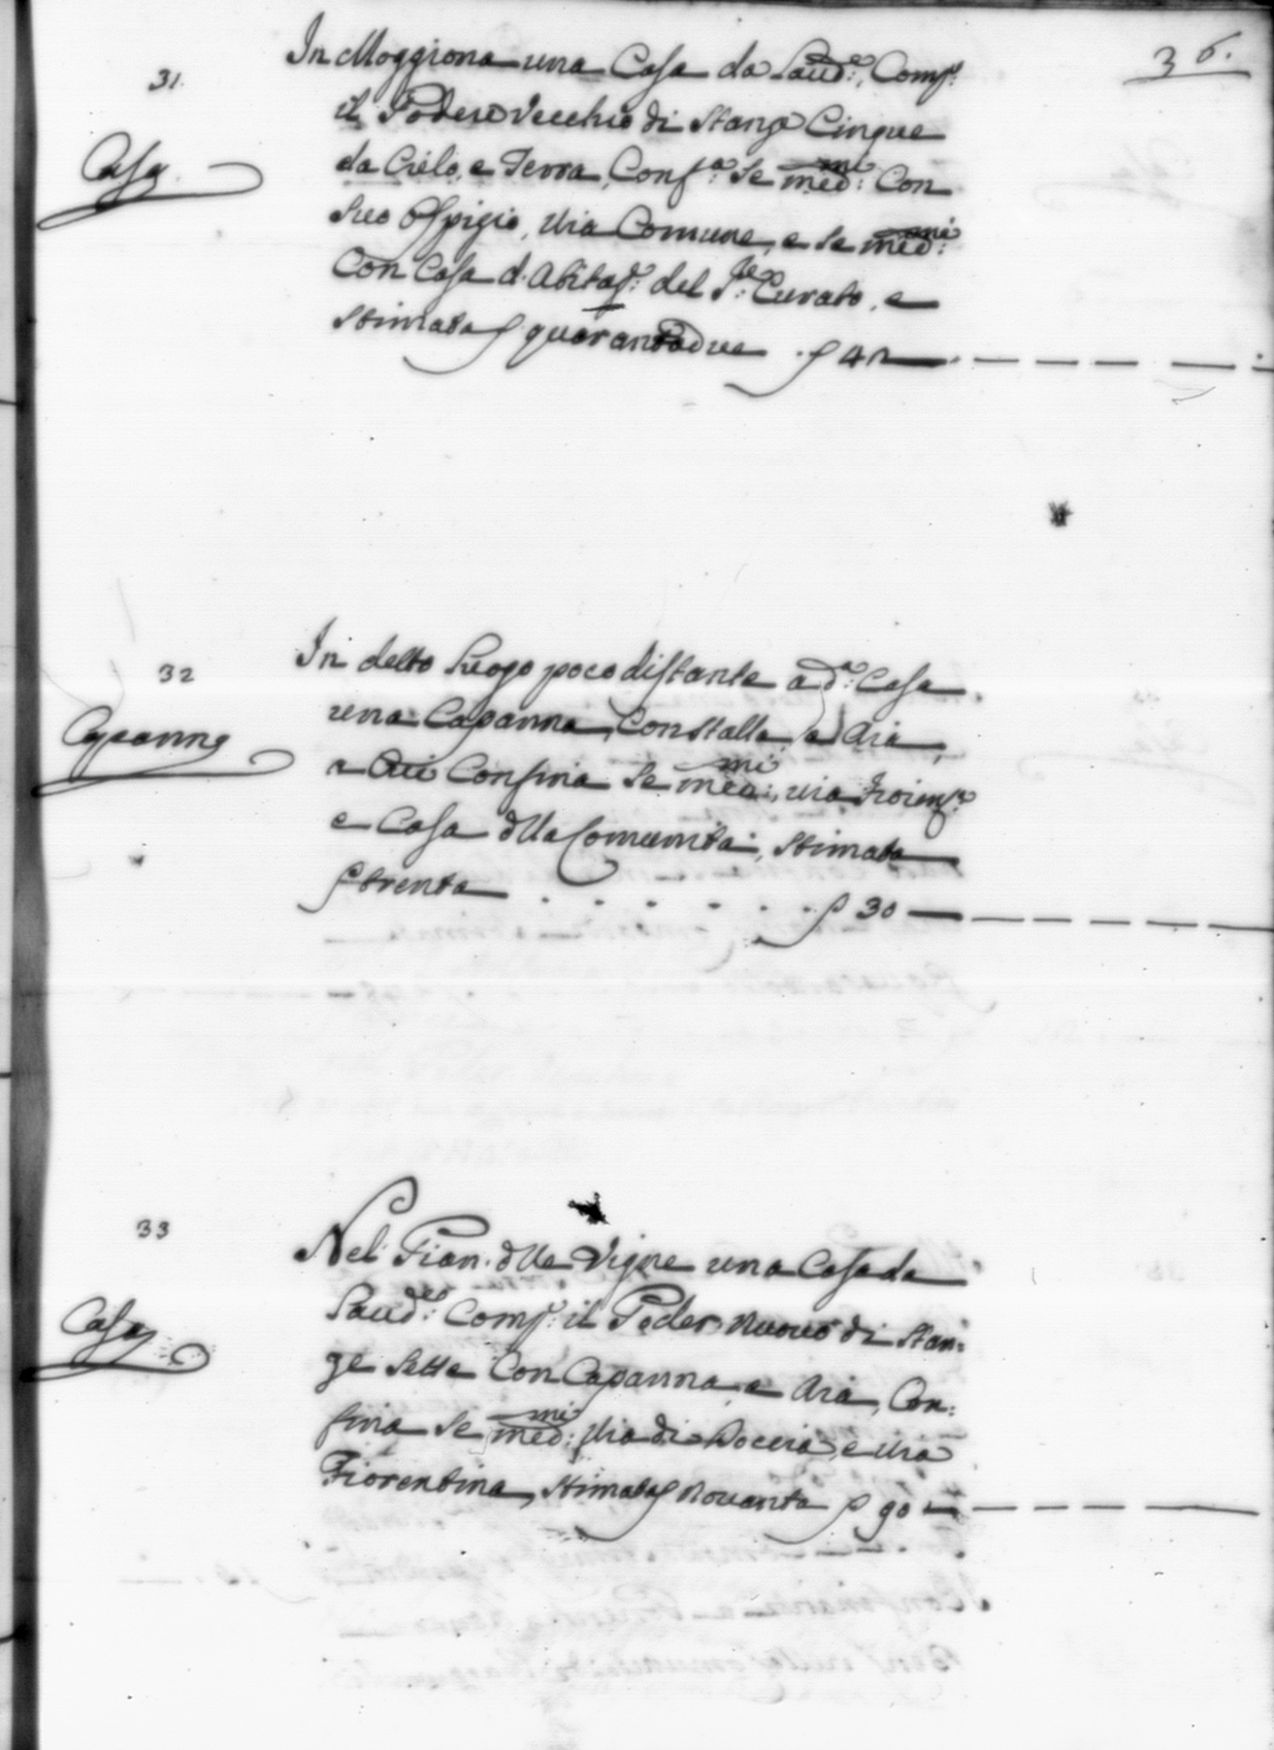 36.
31.
Casa
In Moggiona una Casa da Laud:e, Comp:
il Podere Vecchio di Stanze Cinque
da Cielo, e Terra, Conf:a Se med:mi Con
suo Ospizio, Via Comune, e Se med:mi
Con Casa d'Abitaz: del S:re Curato, e
Stimata p quarantadue . p 42
32
Capanna
In detto Luogo poco distante a d:a Casa
una Capanna, Con Stalla, e Aia,
a Cui Confina Se med:mi, via Fioren:a
e Casa dlla Comunità, Stimata
p trenta . . . . . . p 30
33
Casa
Nel Pian. dlle Vigne una Casa da
Laud:e Comp: il Poder Nuovo di Stan:
ze Sette Con Capanna, e Aia, Con:
fina Se med:mi Via di e Via
Fiorentina, Stimata p Novanta p 90